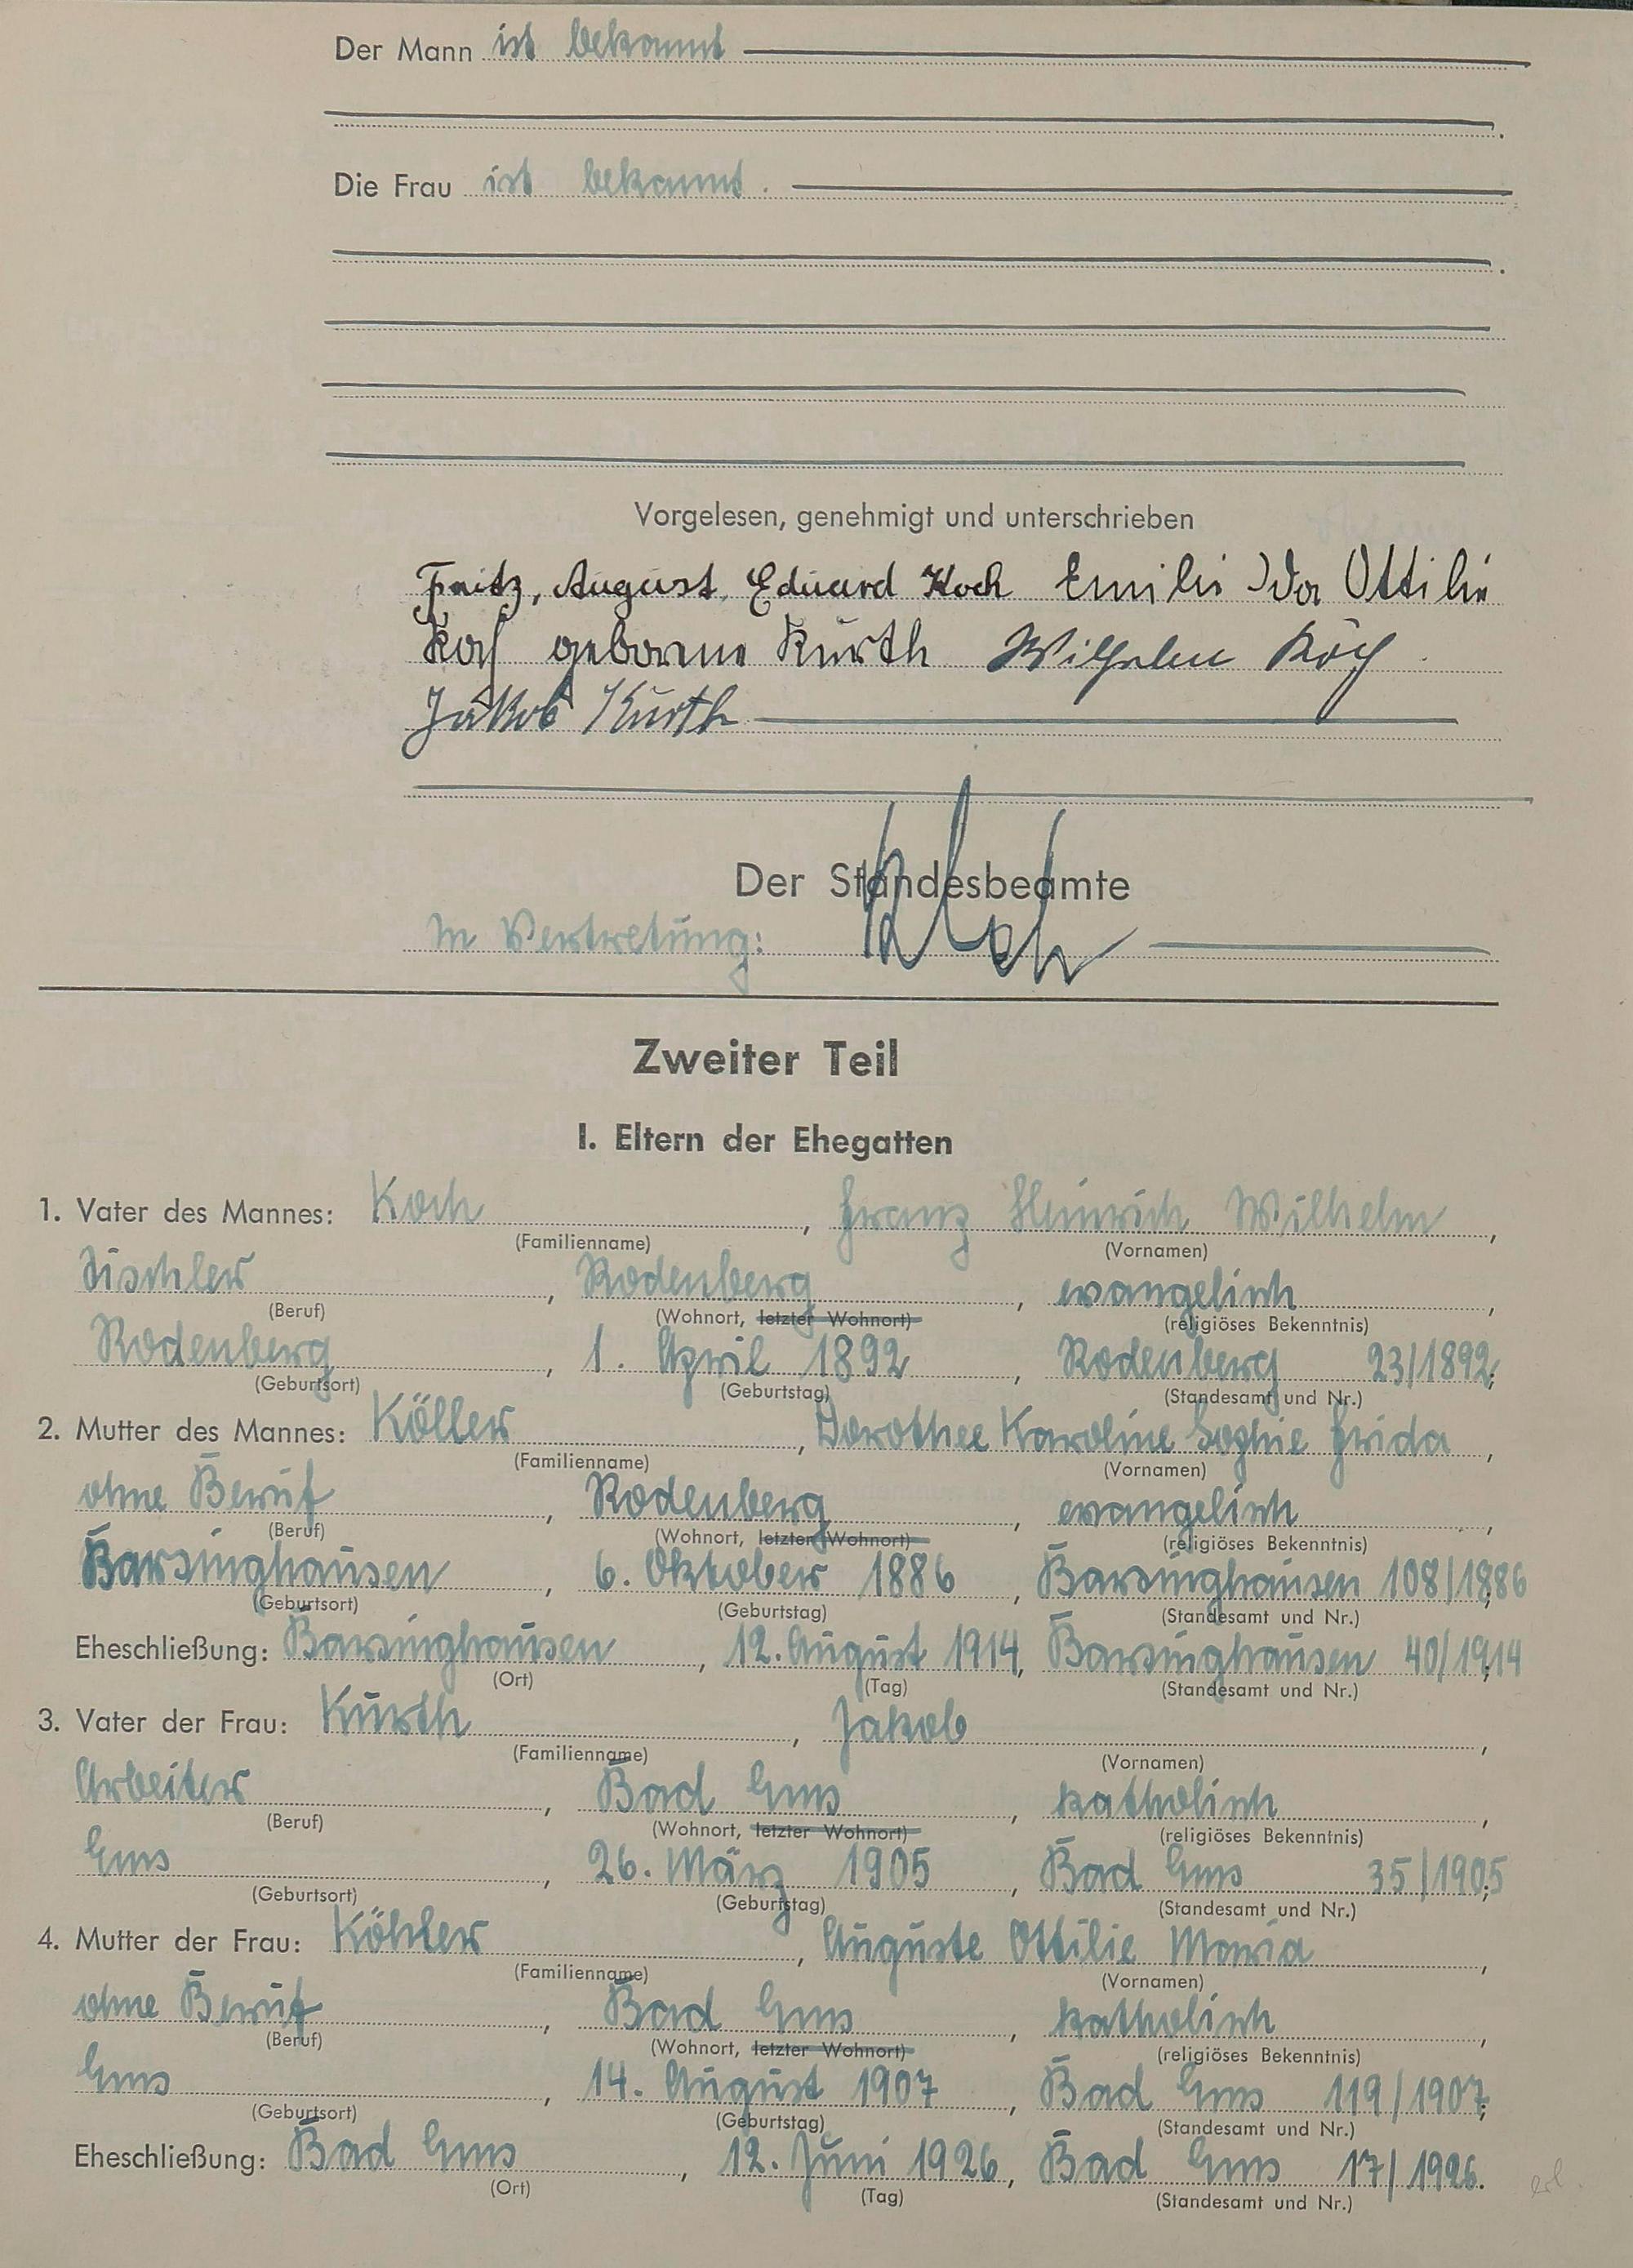 Der Mann ist bekannt
Die Frau ist bekannt.
Vorgelesen, genehmigt und unterschrieben
Fritz, August, Eduard Koch Emilie Ida Ottilie
Koch geborene Kurth Wilhelm Koch
Jakob Kurth
Der Standesbeamte
In Vertretung:
Zweiter Teil
I. Eltern der Ehegatten
1. Vater des Mannes: Koch, Franz Heinrich Wilhelm,
(Familienname) (Vornamen)
Tischler, Rodenberg, evangelisch,
(Beruf) (Wohnort, letzter Wohnort) (religiöses Bekenntnis)
Rodenberg, 1. April 1892, Rodenberg 23/1892;
(Geburtsort) (Geburtstag) (Standesamt und Nr.)
2. Mutter des Mannes: Köller, Dorothee Karoline Sophie Frida,
(Familienname) (Vornamen)
ohne Beruf, Rodenberg, evangelisch,
(Beruf) (Wohnort, letzter Wohnort) (religiöses Bekenntnis)
Barsinghausen, 6. Oktober 1886, Barsinghausen 108/1886;
(Geburtsort) (Geburtstag) (Standesamt und Nr.)
Eheschließung: Barsinghausen, 12. August 1914, Barsinghausen 40/1914;
(Ort) (Tag) (Standesamt und Nr.)
3. Vater der Frau: Kurth, Jakob,
(Familienname) (Vornamen)
Arbeiter, Bad Ems, katholisch,
(Beruf) (Wohnort, letzter Wohnort) (religiöses Bekenntnis)
Ems, 26. März 1905, Bad Ems 35/1905;
(Geburtsort) (Geburtstag) (Standesamt und Nr.)
4. Mutter der Frau: Köhler, Auguste Ottilie Maria,
(Familienname) (Vornamen)
ohne Beruf, Bad Ems, katholisch,
(Beruf) (Wohnort, letzter Wohnort) (religiöses Bekenntnis)
Ems, 14. August 1907, Bad Ems 119/1907;
(Geburtsort) (Geburtstag) (Standesamt und Nr.)
Eheschließung: Bad Ems, 12. Juni 1926, Bad Ems 17/1926.
(Ort) (Tag) (Standesamt und Nr.)